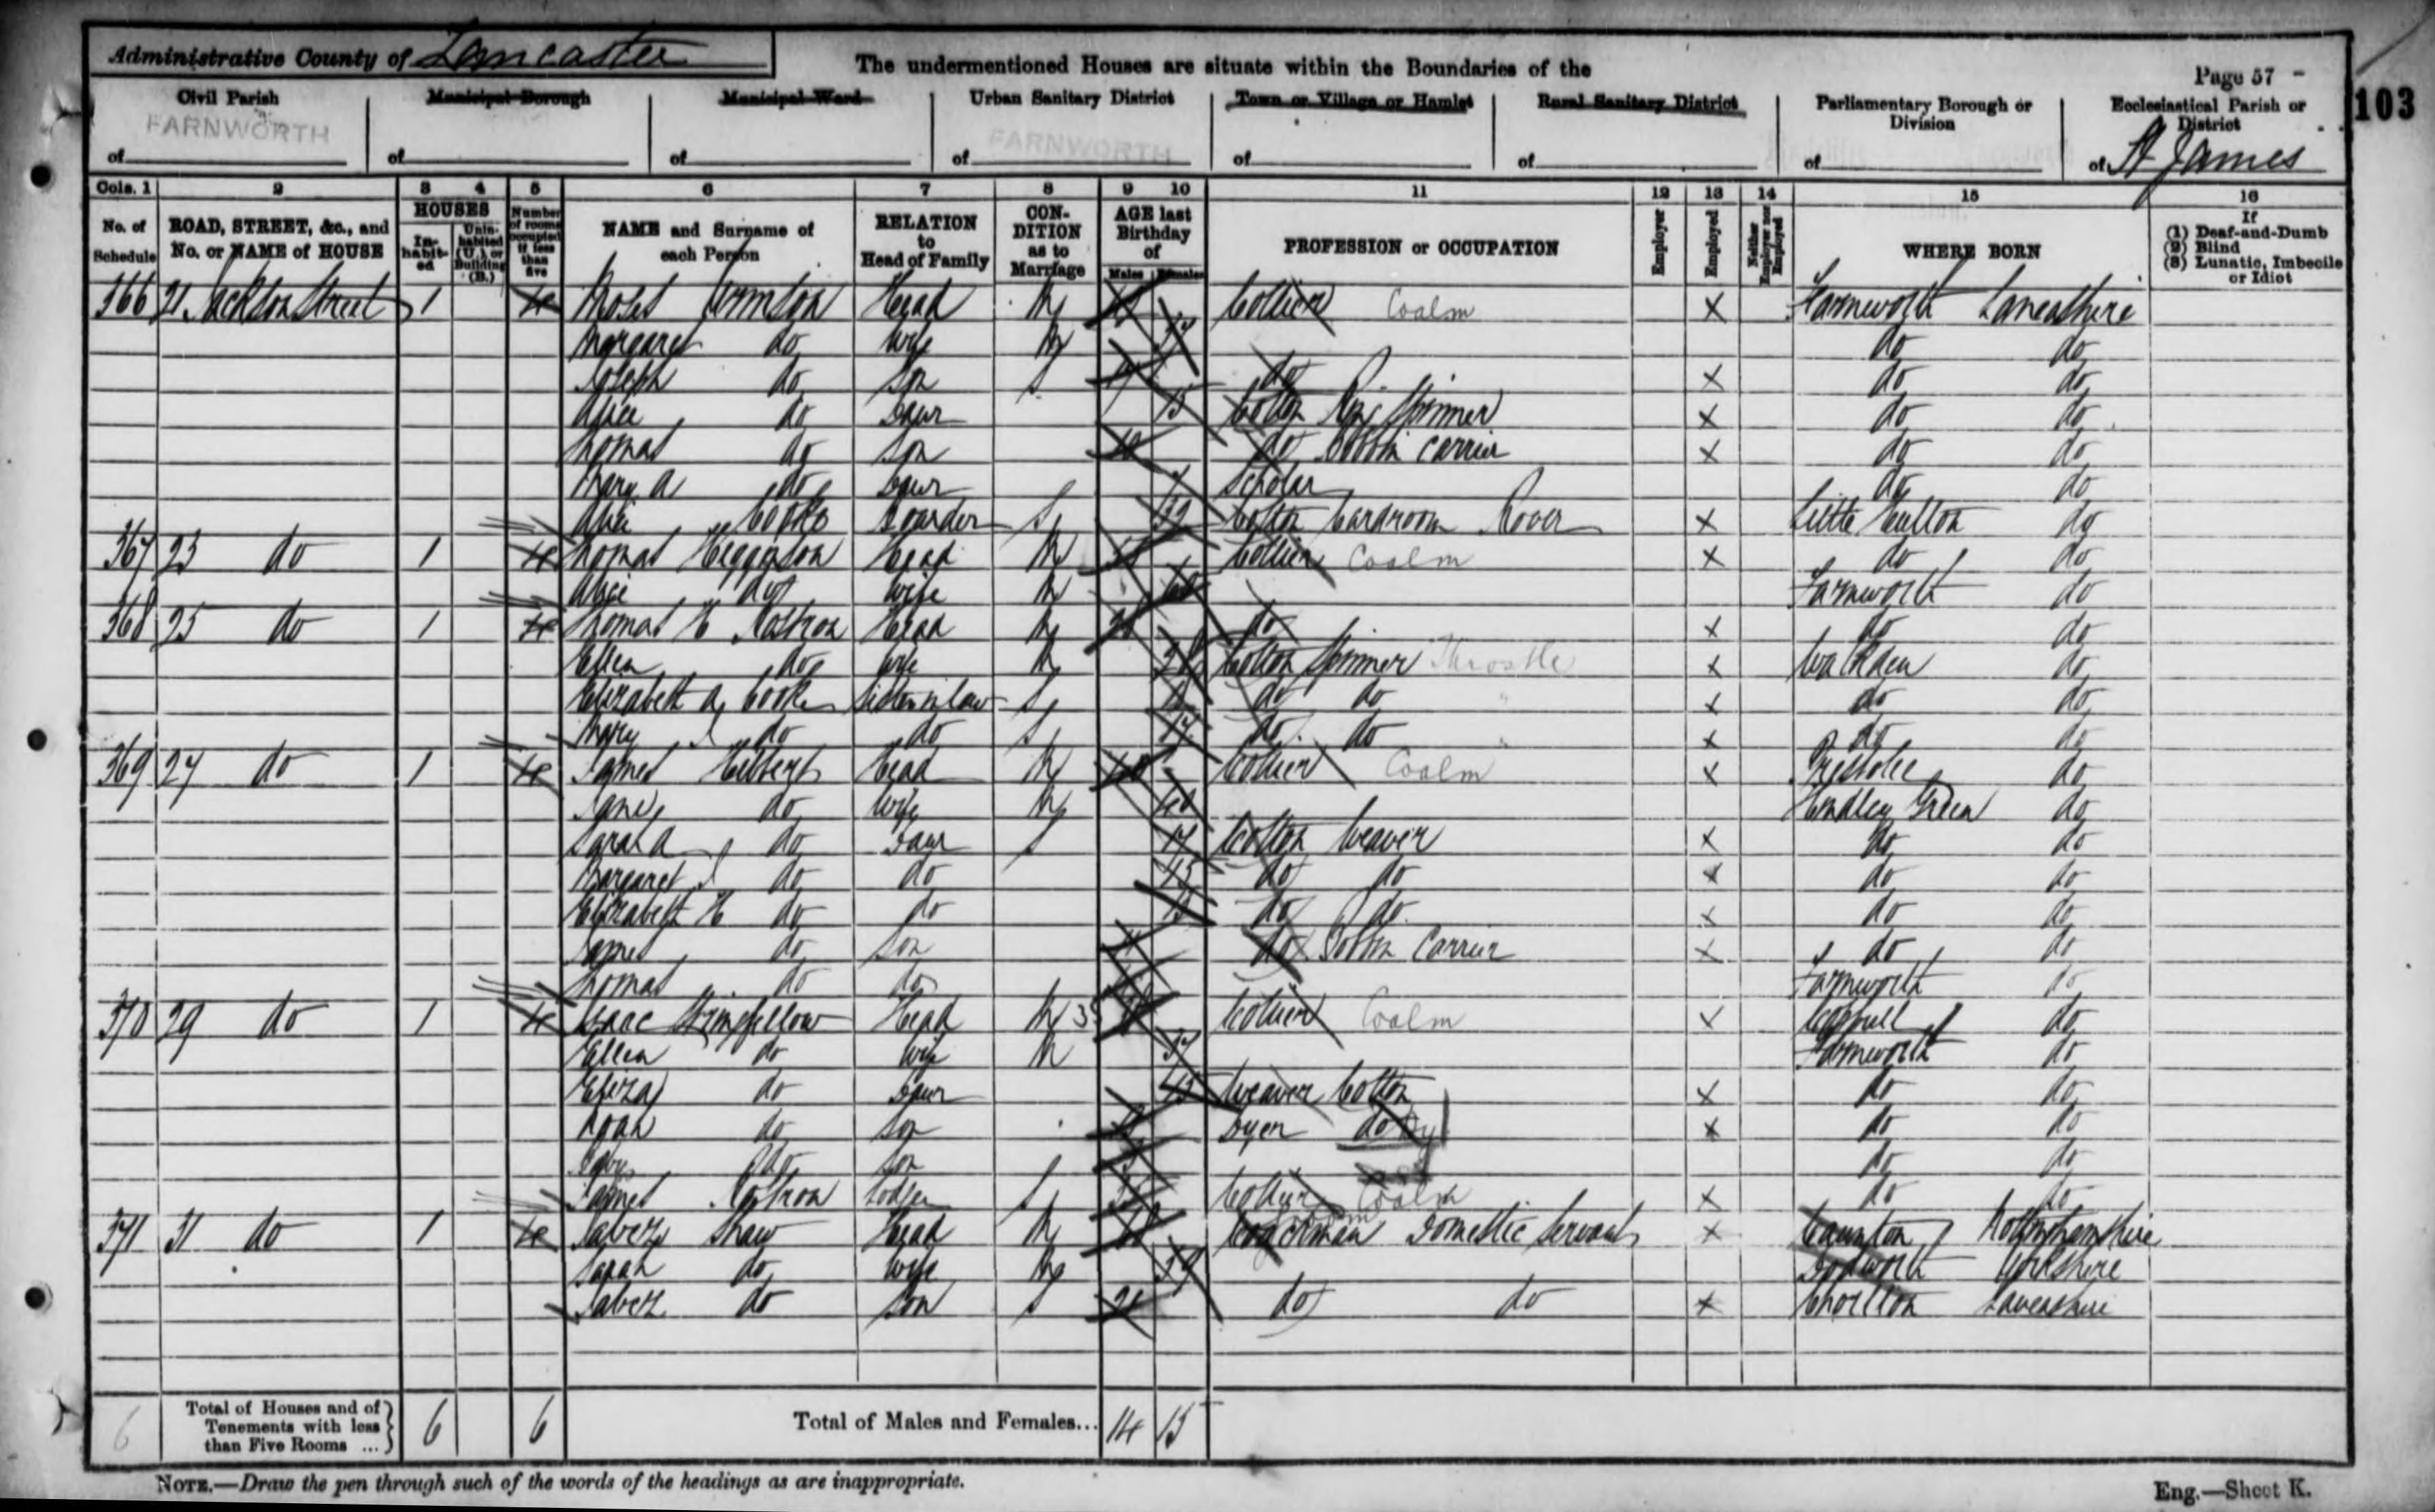 Administrative County of Lancaster
The undermentioned Houses are situate within the Boundaries of the
Page 57
103
Civil Parish Municipal Borough Municipal Ward Urban Sanitary District Town or Village or Hamlet Rural Sanitary District Parliamentary Borough or Division Ecclesiastical Parish or District
of FARNWORTH of of of FARNWORTH of of of of St James
Cols. 1 2 3 4 5 6 7 8 9 10 11 12 13 14 15 16
No. of Schedule ROAD, STREET, &c., and No. or NAME of HOUSE HOUSES Inhabited Uninhabited (U.) or Building (B.) Number of rooms occupied if less than five NAME and Surname of each Person RELATION to Head of Family CONDITION as to Marriage AGE last Birthday of Males Females PROFESSION or OCCUPATION Employer Employed Neither Employer nor Employed WHERE BORN If (1) Deaf-and-Dumb (2) Blind (3) Lunatic, Imbecile or Idiot
366 21 Jackson Street 1 4 Moses Head M Collier Coalm X Farnworth Lancashire
Margaret do Wife M do do
Joseph do Son S 19 do X do do
Alice do Daur 15 Cotton Ring Spinner X do do
Thomas do Son do Bobbin Carrier X do do
Mary A do Daur Scholar do do
Alice Cooke Boarder S Cotton Cardroom Rover X Little Hulton do
367 23 do 1 4 Thomas Head M Collier Coalm X do do
Alice do Wife M Farnworth do
368 25 do 1 4 Thomas H Rostron Head M do X do do
Ellen do Wife M Cotton Spinner Throstle X Walkden do
Elizabeth A Cooke Sister in law S do do " X do do
Mary J do do S do do " X do do
369 27 do 1 4 James Hilbert Head M 40 Collier Coalm X Prestolee do
Jane do Wife M 40 Hindley Green do
Sarah A do Daur S 17 Cotton Weaver X do do
Margaret J do do 15 do do X do do
Elizabeth H do do 13 do do X do do
James do Son 11 do Bobbin Carrier X do do
Thomas do do Farnworth do
370 29 do 1 4 Isaac Stringfellow Head M 35 Collier Coalm X Coppull do
Ellen do Wife M Farnworth do
Eliza do Daur 13 Weaver Cotton X do do
Noah do Son Dyer do X do do
do Son do do
James Rostron Lodger S Collier Coalm X do do
371 31 do 1 4 Jabez Shaw Head M Coachman Domestic Servant X Caunton Nottinghamshire
Sarah do Wife M 59 Dodworth Yorkshire
Jabez do Son S do do X Chorlton Lancashire
6 Total of Houses and of Tenements with less than Five Rooms ... 6 6 Total of Males and Females... 14 15
NOTE.—Draw the pen through such of the words of the headings as are inappropriate.
Eng.—Sheet K.